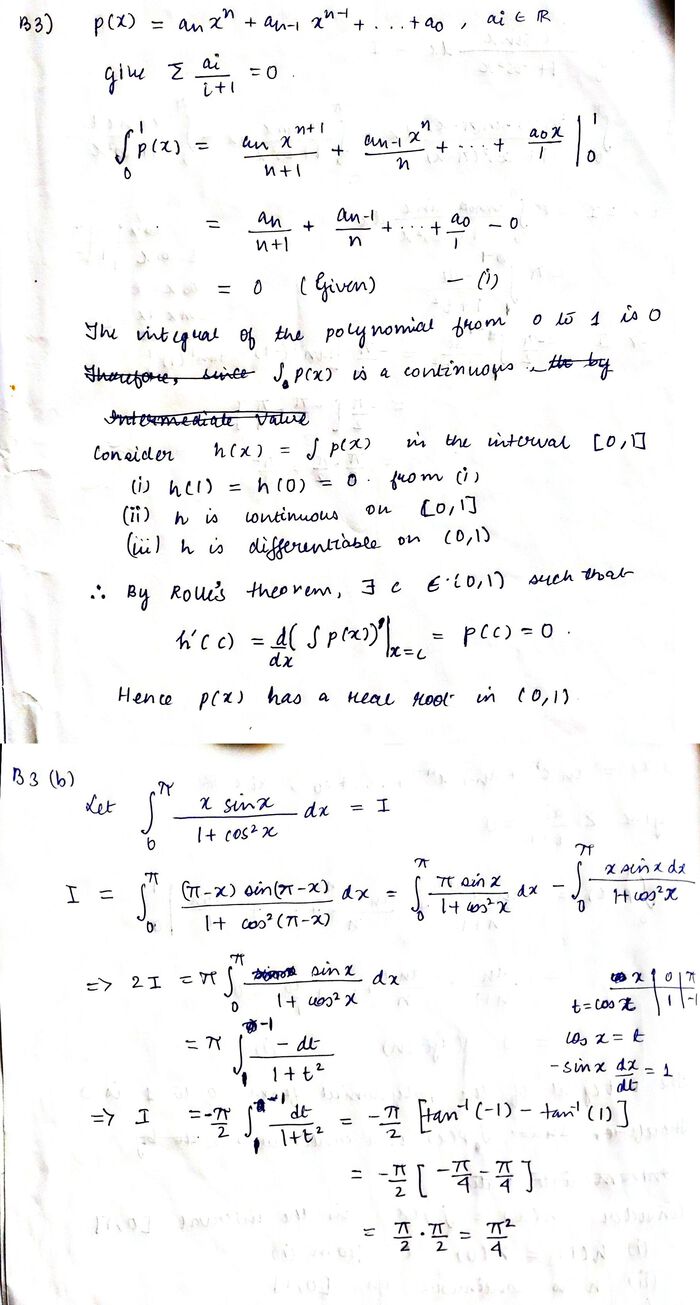 B3) p(x) = aₙxⁿ + aₙ₋₁ xⁿ⁻¹ + . . . + a₀ , aᵢ ∈ ℝ
give Σ aᵢ/(i+1) = 0 .
∫₀¹ p(x) = aₙ xⁿ⁺¹/(n+1) + aₙ₋₁ xⁿ/n + . . . + a₀x/1 |₀¹
= aₙ/(n+1) + aₙ₋₁/n + . . . + a₀/1 - 0
= 0 (Given) - (i)
The integral of the polynomial from 0 to 1 is 0
Therefore, since ∫₀ p(x) is a continuous the by
Intermediate Value
Consider h(x) = ∫ p(x) in the interval [0,1]
(i) h(1) = h(0) = 0 . from (i)
(ii) h is continuous on [0,1]
(iii) h is differentiable on (0,1)
∴ By Rolle's theorem, ∃ c ∈ (0,1) such that
h'(c) = d/dx (∫ p(x))'|ₓ₌c = p(c) = 0 .
Hence p(x) has a real root in (0,1)
B3 (b)
Let ∫₀^π x sinx/(1 + cos²x) dx = I
I = ∫₀^π (π-x) sin(π-x)/(1 + cos²(π-x)) dx = ∫₀^π π sin x/(1+cos²x) dx - ∫₀^π x sin x dx/(1+cos²x)
=> 2I = π ∫₀^π sinx/(1 + cos²x) dx
x | 0 | π
t = cos x | 1 | -1
= π ∫₁^-1 - dt/(1 + t²)
cos x = t
-sinx dx/dt = 1
=> I = -π/2 ∫₁^-1 dt/(1+t²) = -π/2 [tan⁻¹(-1) - tan⁻¹(1)]
= -π/2 [ -π/4 - π/4 ]
= π/2 · π/2 = π²/4